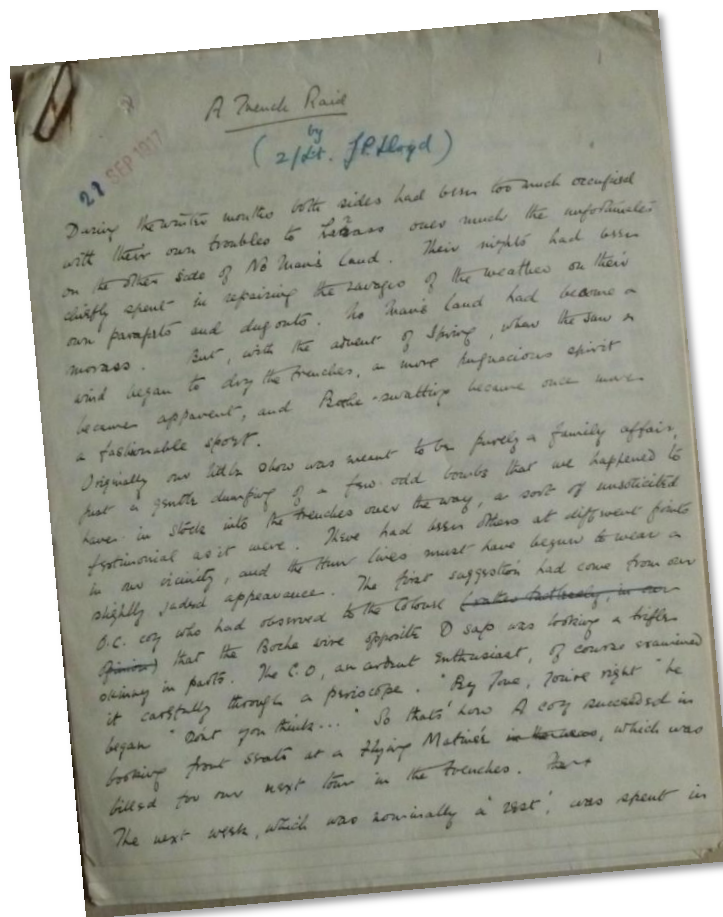 A Trench Raid
by
(2/Lt. J.P. Lloyd)
21 SEP 1917
During the winter months both sides had been too much occupied
with their own troubles to harass over much the unfortunates
on the other side of No Man's Land. Their nights had been
chiefly spent in repairing the ravages of the weather on their
own parapets and dugouts. No Man's Land had become a
morass. But, with the advent of Spring, when the sun &
wind began to dry the trenches, a more pugnacious spirit
became apparent, and Boche-swatting became once more
a fashionable sport.
Originally our little show was meant to be purely a family affair,
just a gentle dumping of a few odd bombs that we happened to
have in stock into the trenches over the way, a sort of unsolicited
testimonial as it were. There had been others at different points
in our vicinity, and the Hun lines must have begun to wear a
slightly jaded appearance. The first suggestion had come from our
O.C. coy who had observed to the Colonel (rather tactlessly, in our
opinion) that the Boche wire opposite D sap was looking a trifle
skinny in parts. The C.O, an ardent enthusiast, of course examined
it carefully through a periscope. "By Jove, you're right" he
began "Don't you think..." So that's how A coy succeeded in
booking front seats at a Flying Matinée in, which was
billed for our next tour in the trenches.
The next week, which was nominally a 'rest', was spent in